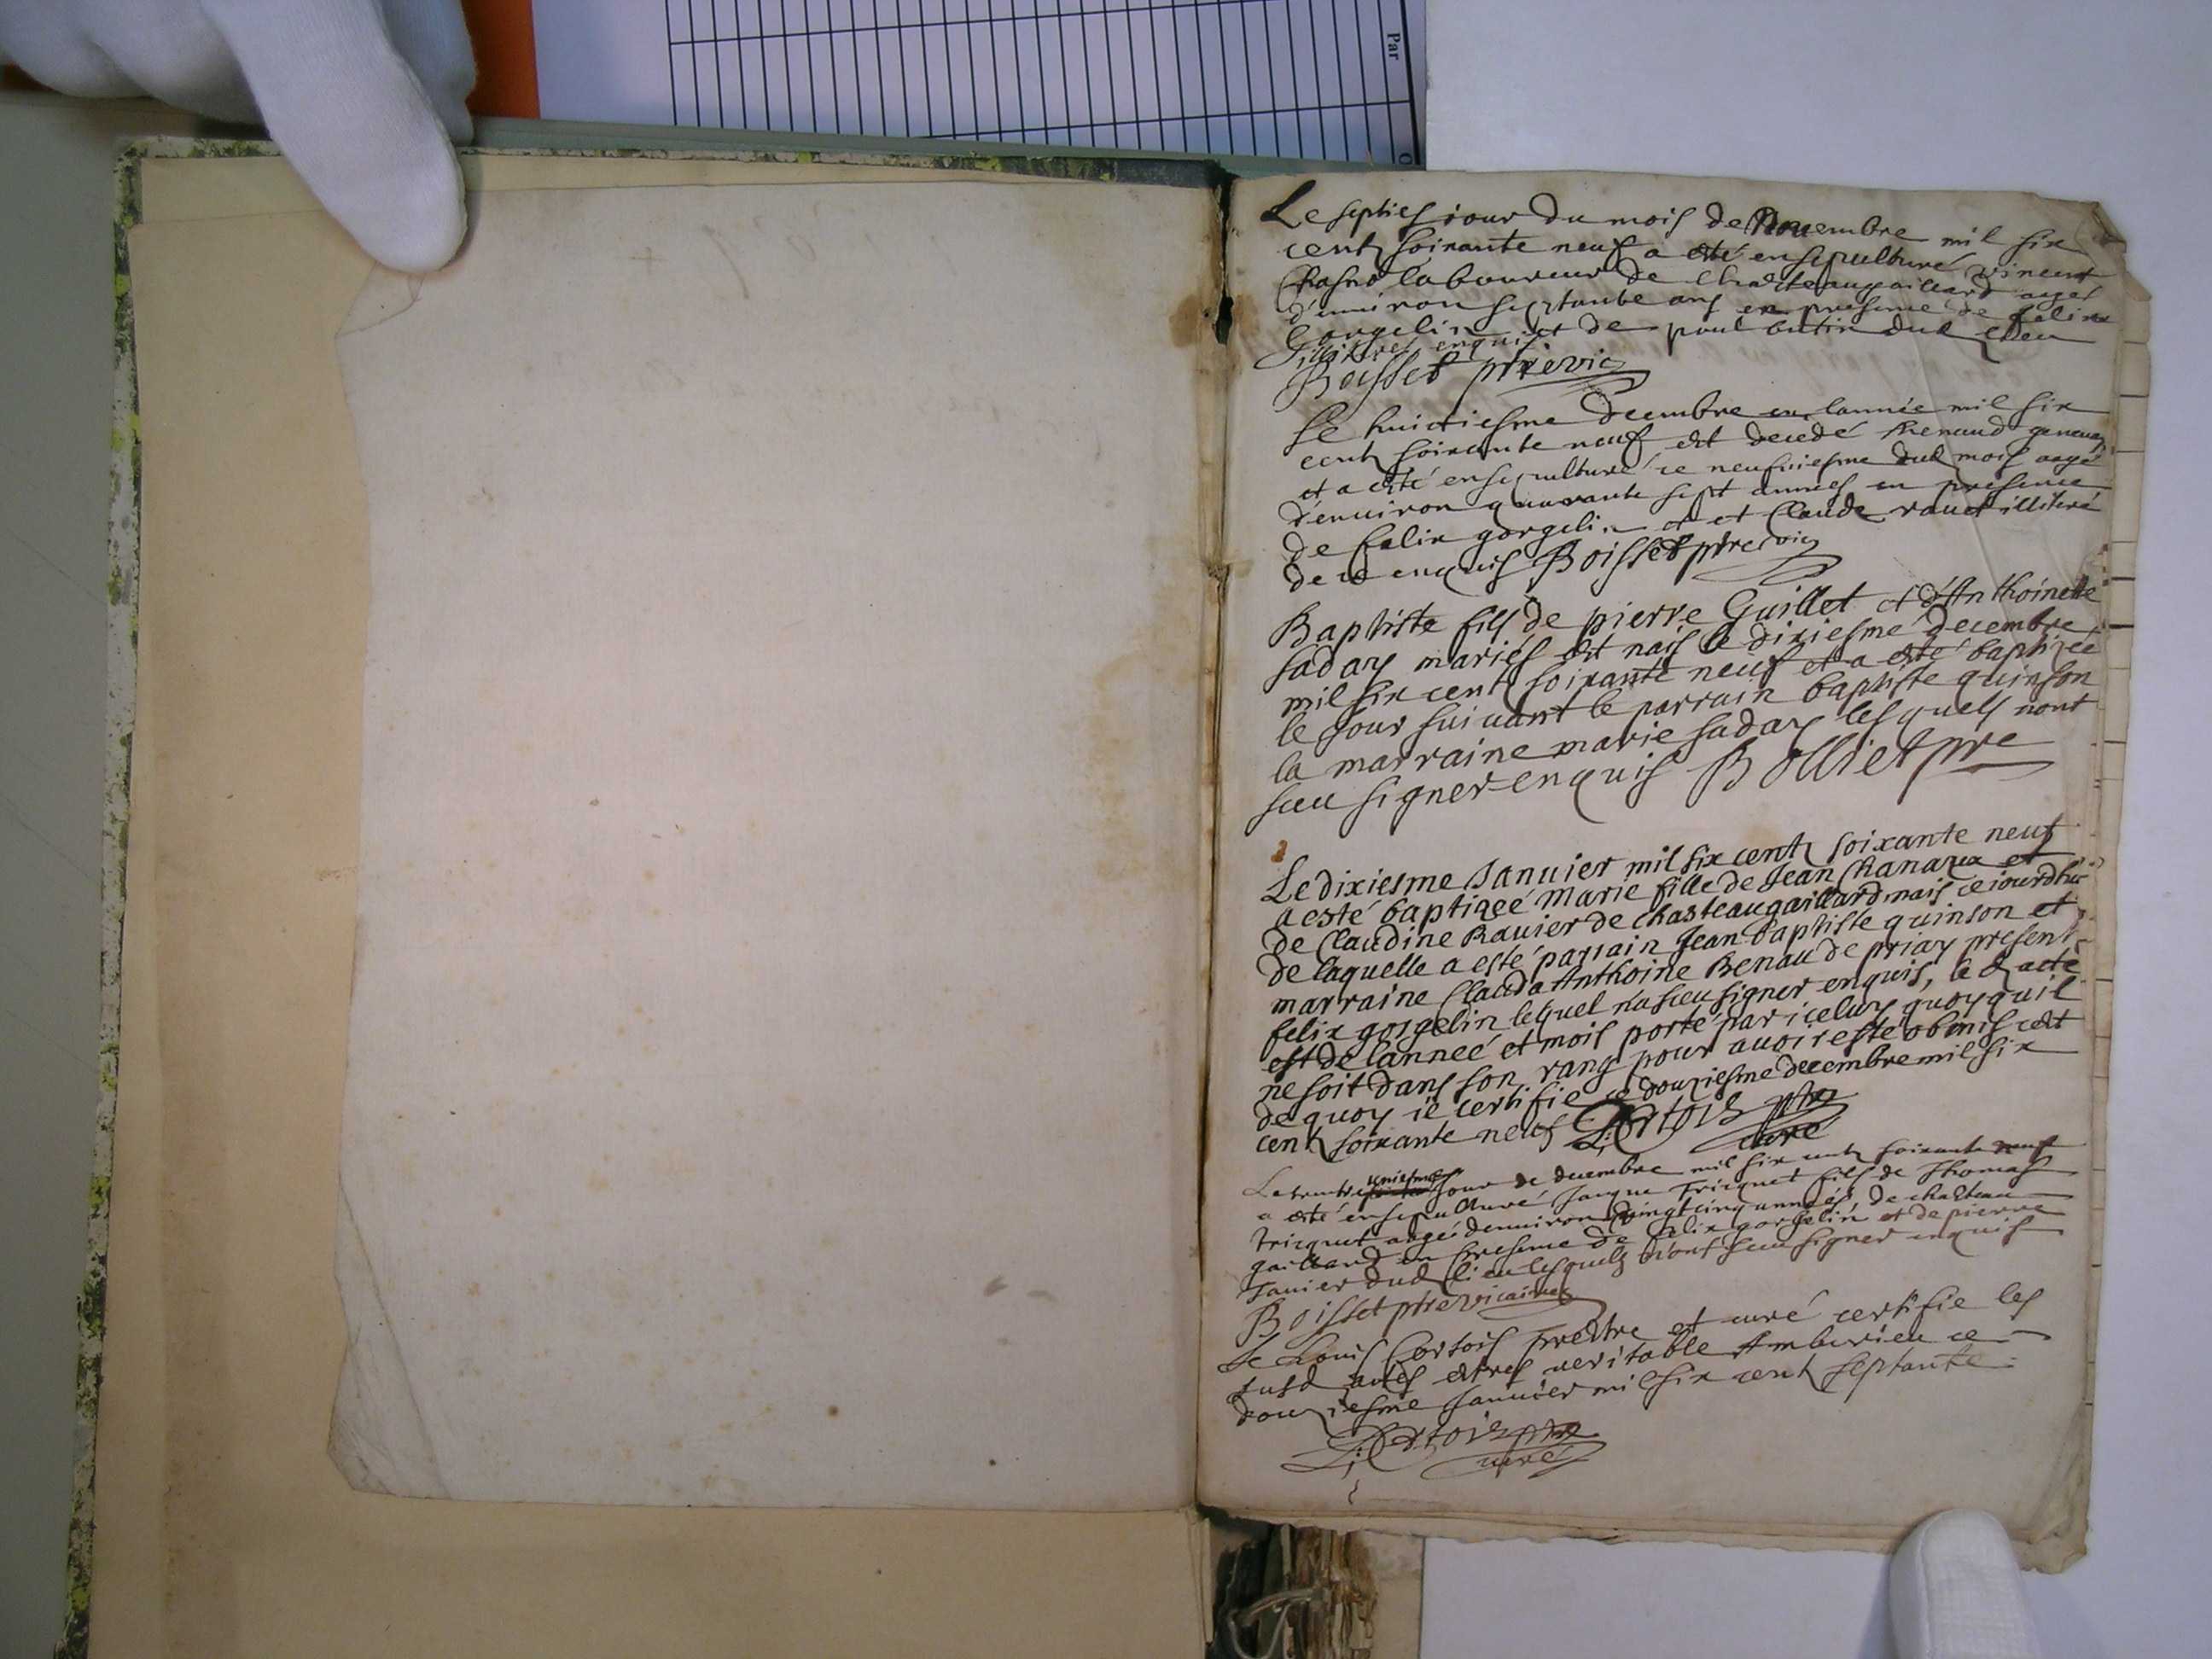 Par
Le septies jour du mois de Novembre mil six
cents soixante neuf a esté ensepulturé vincent
laboureur de Chasteaugaillard aagé
d'environ septante ans en presence de felix
gorgelin et de paul butin dud lieu
illiteres enquis
Boisset ptre vic
Le huictiesme decembre en lannée mil six
cents soixante neuf est decedé Renaud
et a esté ensepulturé ce neufviesme dud mois aagé
d'environ quarante sept années en presence
de felix gorgelin et et Claude ravet illiteré
de ce enquis Boisset ptre vic
Baptiste fils de pierre Guillet et d'Anthoinette
saday mariés est nais le dixiesme decembre
mil six cents soixante neuf et a esté baptizée
le jour suivant le parrain baptiste quinson
la marraine marie saday lesquels nont
sceu signer enquis Bolliet ptre
Le dixiesme Januier mil six cents soixante neuf
a esté baptizeé Marie fille de Jean Chanaux et
de Claudine Rauier de chasteaugaillard nais ce iourdhuÿ
de laquelle a esté parrain Jean baptiste quinson et
marraine Clauda Anthoine Renau de priay presents
felix gorgelin lequel n'a sceu signer enquis, le d acte
est de l'anneé et mois porté par iceluy quoy quil
ne soit dans son rang pour auoir esté obmis cest
de quoy ie certifie ce douziesme decembre mil six
cents soixante neuf L: Cortois ptre
curé
Le trente uniesme jour de decembre mil six cents soixante neuf
a esté ensepulturé Jaque Tricquet fils de Thomas
tricquet aagé denviron vingt cinq années, de chasteau
gaillard en presence de felix gorgelin et de pierre
Janier dud lieu lesquels n'ont sceu signer enquis
Boisset ptre vicaire
Je Louis Cortois prestre et curé certifie les
susd actes estres veritable Amburieu ce
douziesme januier mil six cent septante
L: Cortois ptre
curé